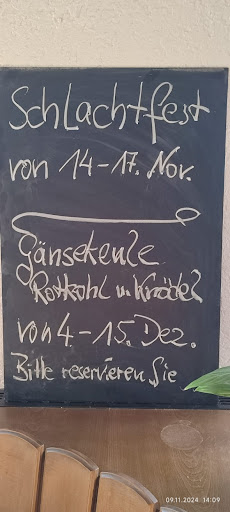 Schlachtfest
von 14-17. Nov.
Gänsekeule
Rotkohl u. Knödel
von 4.-15. Dez.
Bitte reservieren Sie
09.11.2024 14:09